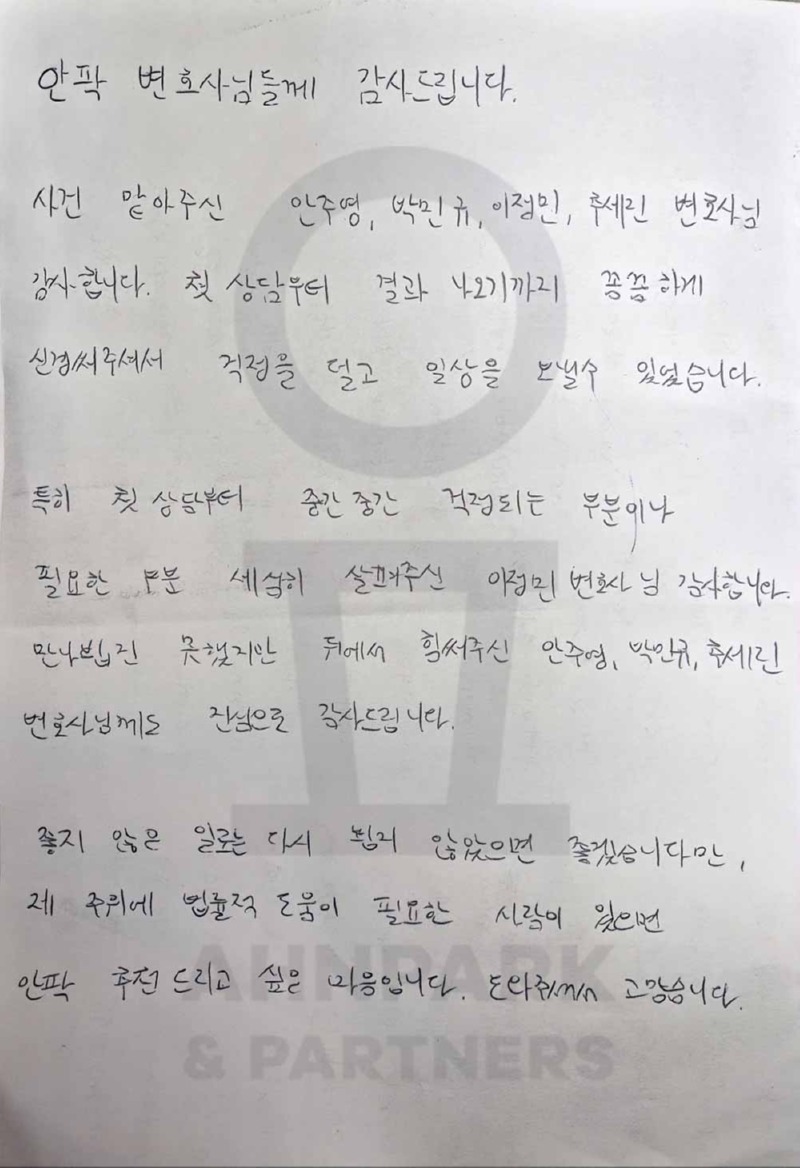 안팍 변호사님들께 감사드립니다.
사건 맡아주신 안주영, 박민규, 이정민, 추세린 변호사님
감사합니다. 첫 상담부터 결과 나오기까지 꼼꼼하게
신경써주셔서 걱정을 덜고 일상을 보낼수 있었습니다.
특히 첫 상담부터 중간중간 걱정되는 부분이나
필요한 부분 세심히 살펴주신 이정민 변호사님 감사합니다.
만나뵙진 못했지만 뒤에서 힘써주신 안주영, 박민규, 추세린
변호사님께도 진심으로 감사드립니다.
좋지 않은 일로는 다시 뵙지 않았으면 좋겠습니다만,
제 주위에 법률적 도움이 필요한 사람이 있으면
안팍 추천 드리고 싶은 마음입니다. 도와줘서 고맙습니다.
AHNPARK
& PARTNERS